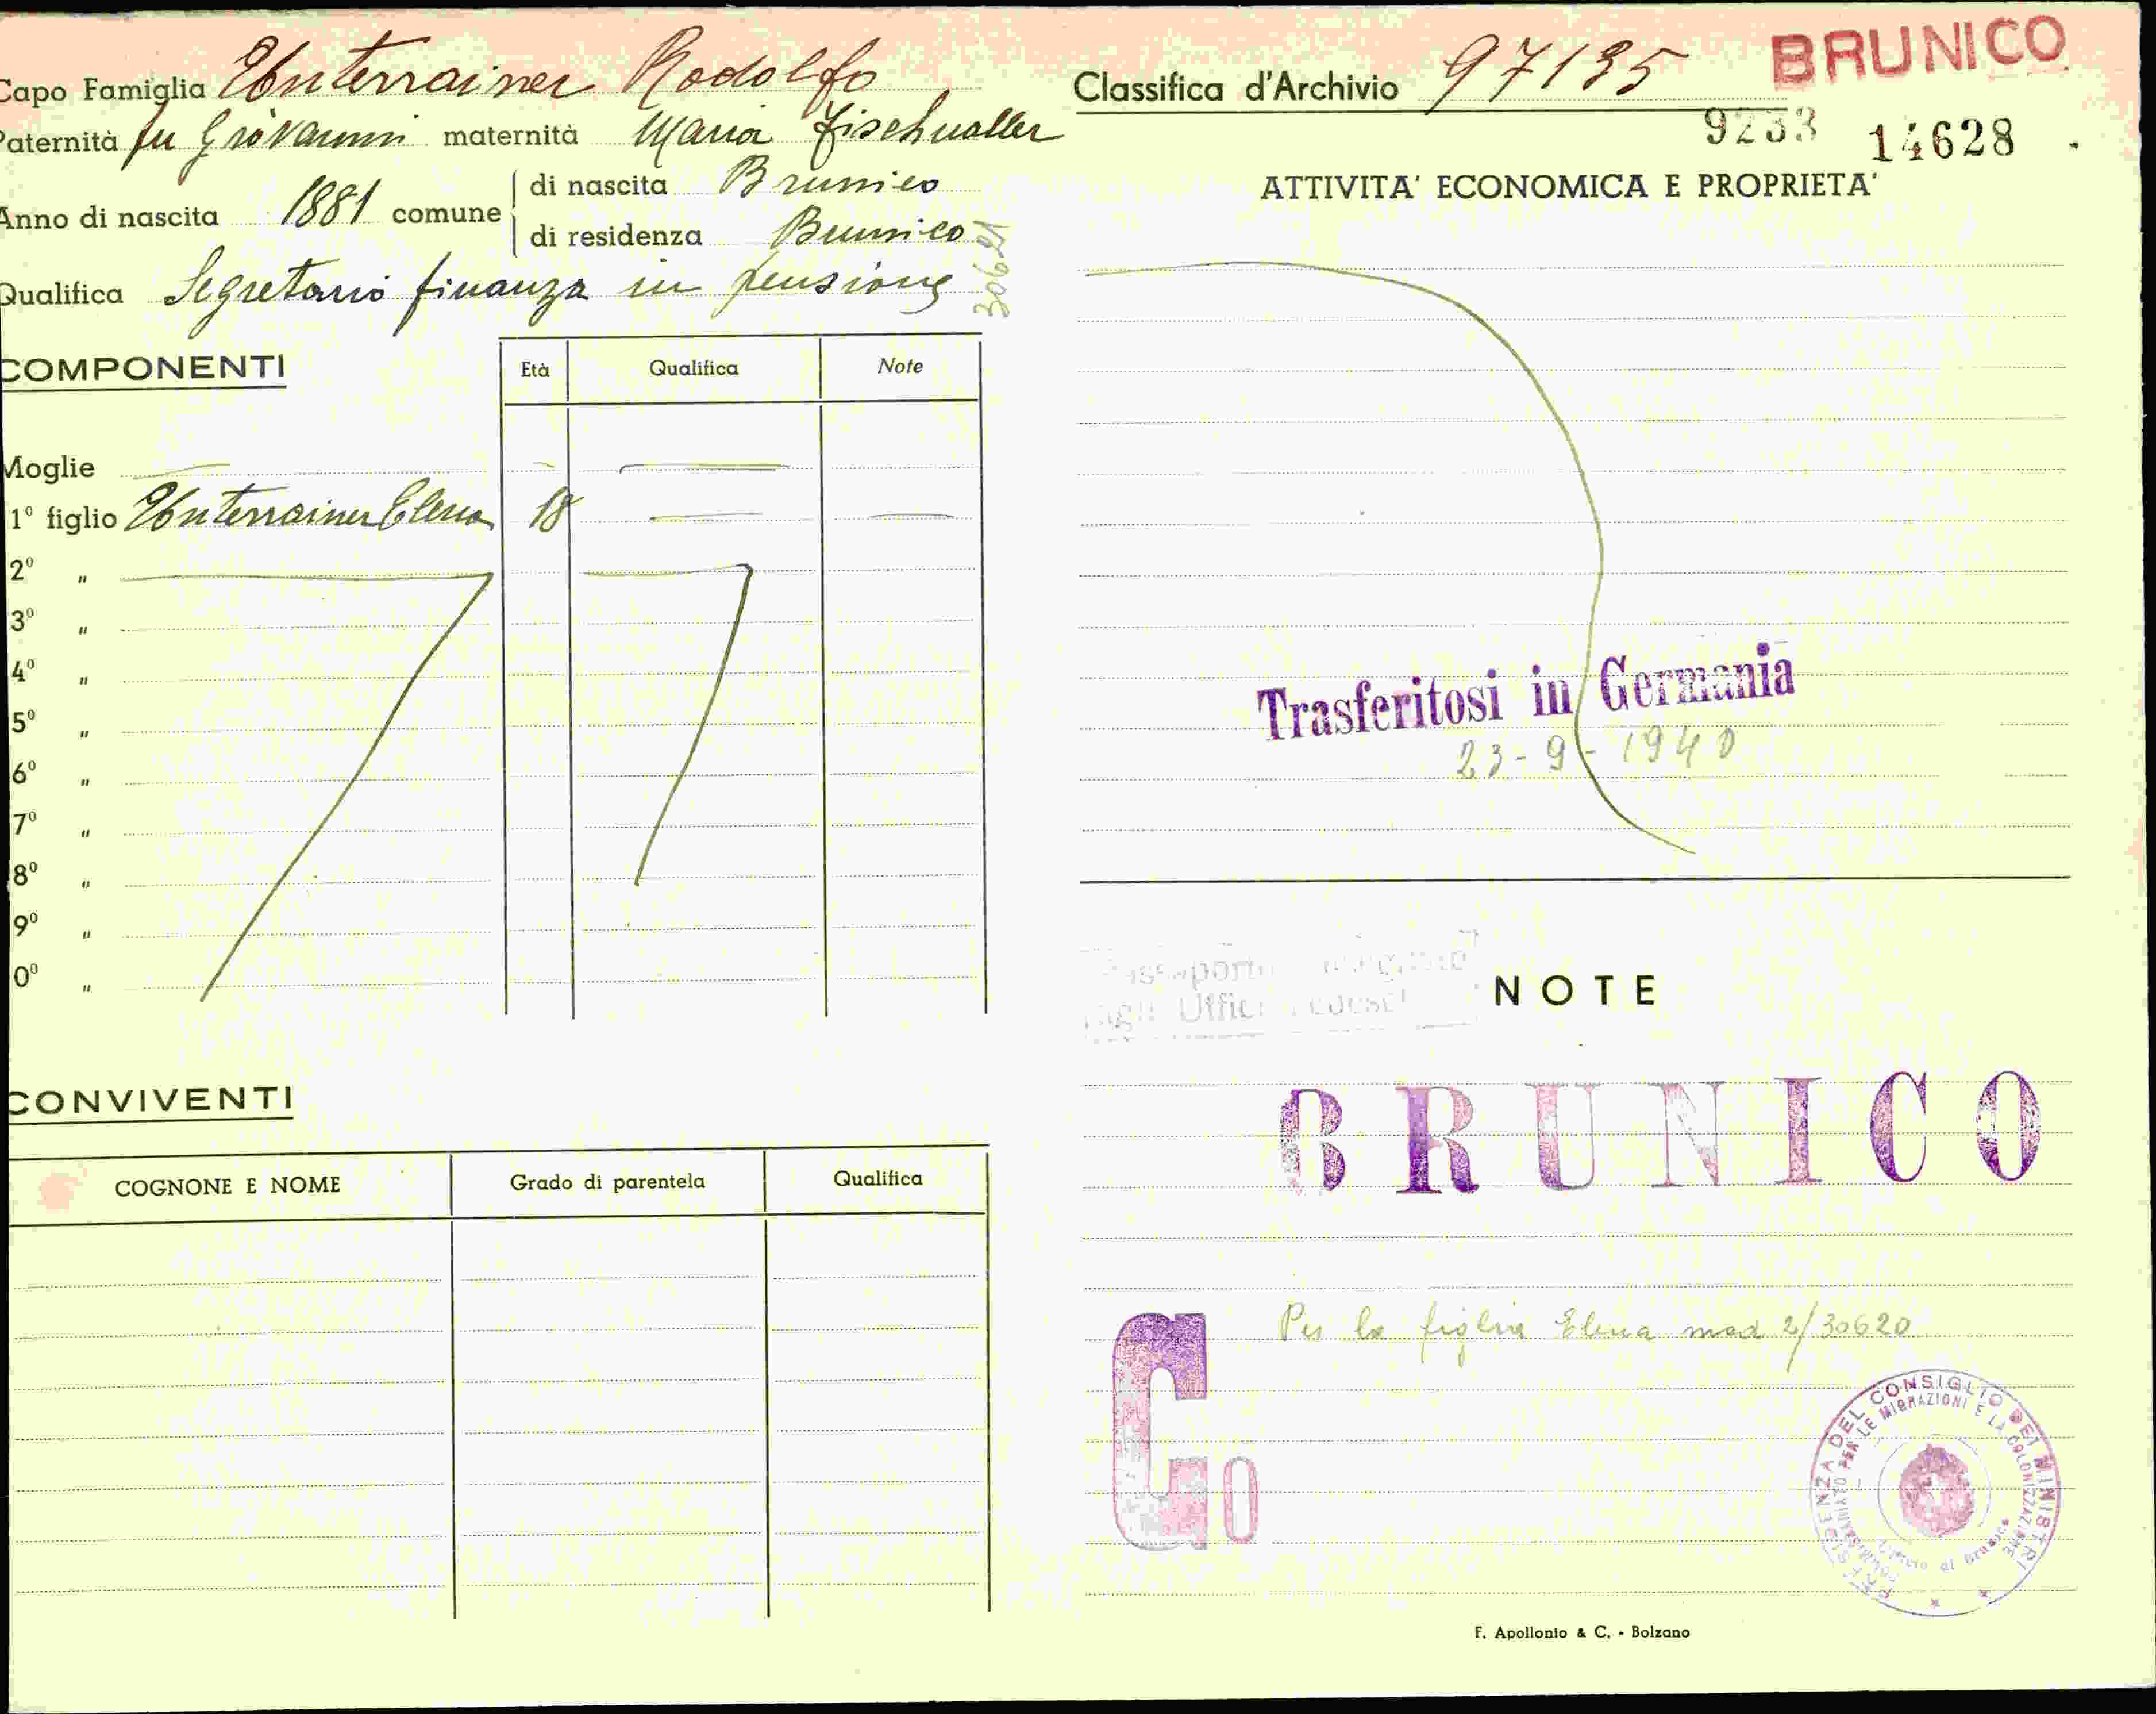 Capo Famiglia Unterrainer Rodolfo
Paternità fu Giovanni maternità Maria Fischnaller
Anno di nascita 1881 comune
di nascita Brunico
di residenza Brunico
Qualifica Segretario finanza in pensione
30621
COMPONENTI
Età Qualifica Note
Moglie
1º figlio Unterrainer Elena 18
2º "
3º "
4º "
5º "
6º "
7º "
8º "
9º "
0º "
CONVIVENTI
COGNONE E NOME Grado di parentela Qualifica
BRUNICO
Classifica d'Archivio 97135
9233 14628
ATTIVITA' ECONOMICA E PROPRIETA'
Trasferitosi in Germania
23-9-1940
Passaporto
Uffici
NOTE
BRUNICO
Go
Per la figlia Elena mod 2/30620
PRESIDENZA DEL CONSIGLIO DEI MINISTRI
PER LE MIGRAZIONI E LA COLONIZZAZIONE
Ufficio di Brunico
F. Apollonio & C. - Bolzano